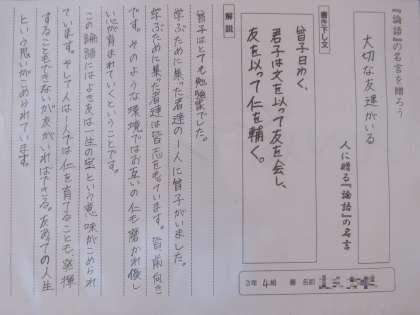 『論語』の名言を贈ろう
大切な友達がいる
人に贈る『論語』の名言
3年4組
番 名前
書き下し文
曾子曰わく、
君子は文を以って友を会し、
友を以って仁を輔く。
解説
曾子はとても勉強でした。
学ぶために集った君達の一人に曾子がいました。
学ぶために集った君達は皆志をもっています。皆前向き
です。そのような環境ではお互いの仁も磨かれ優し
い心が育まれていくということです。
この論語にはよき友は一生の宝という意味がこめられ
ています。そして人は一人では仁を育てることも、発揮
することもできないが友がいればできる。友あっての人生
という思いがこめられています。